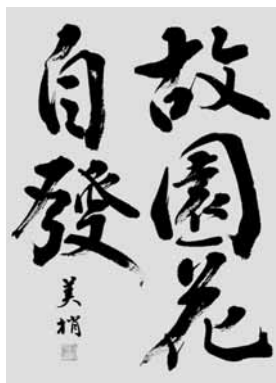 故園花
自發
美梢